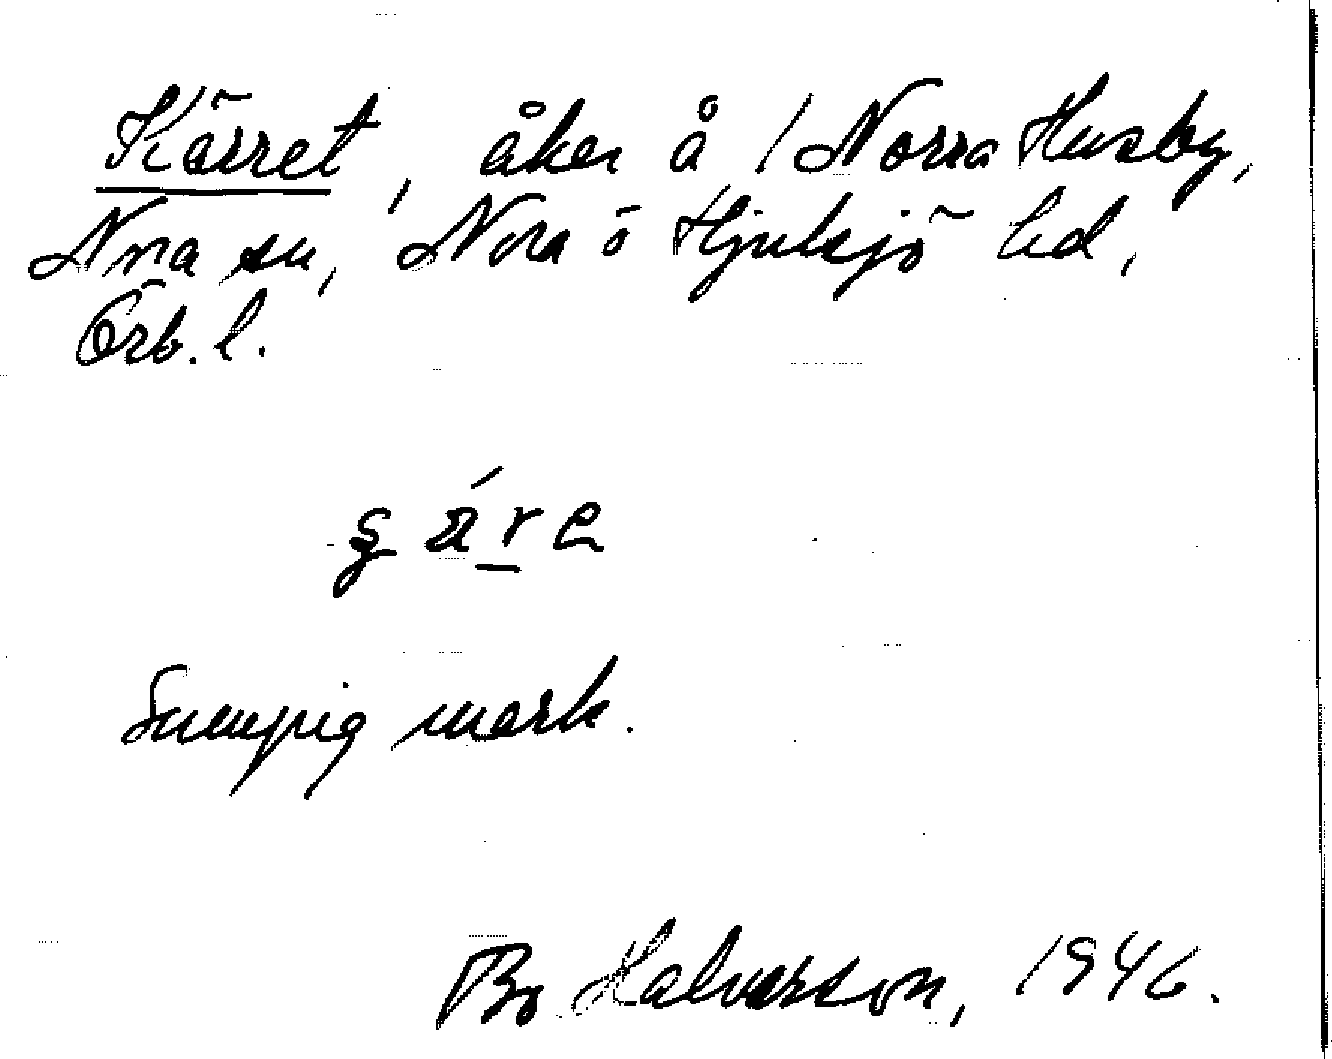 Kärret, åker å 1 Norra Husby,
Nora sn, Nora o Hjulsjö hd,
Örb. l.
Sumpig mark.
Bo Halvarson, 1946.